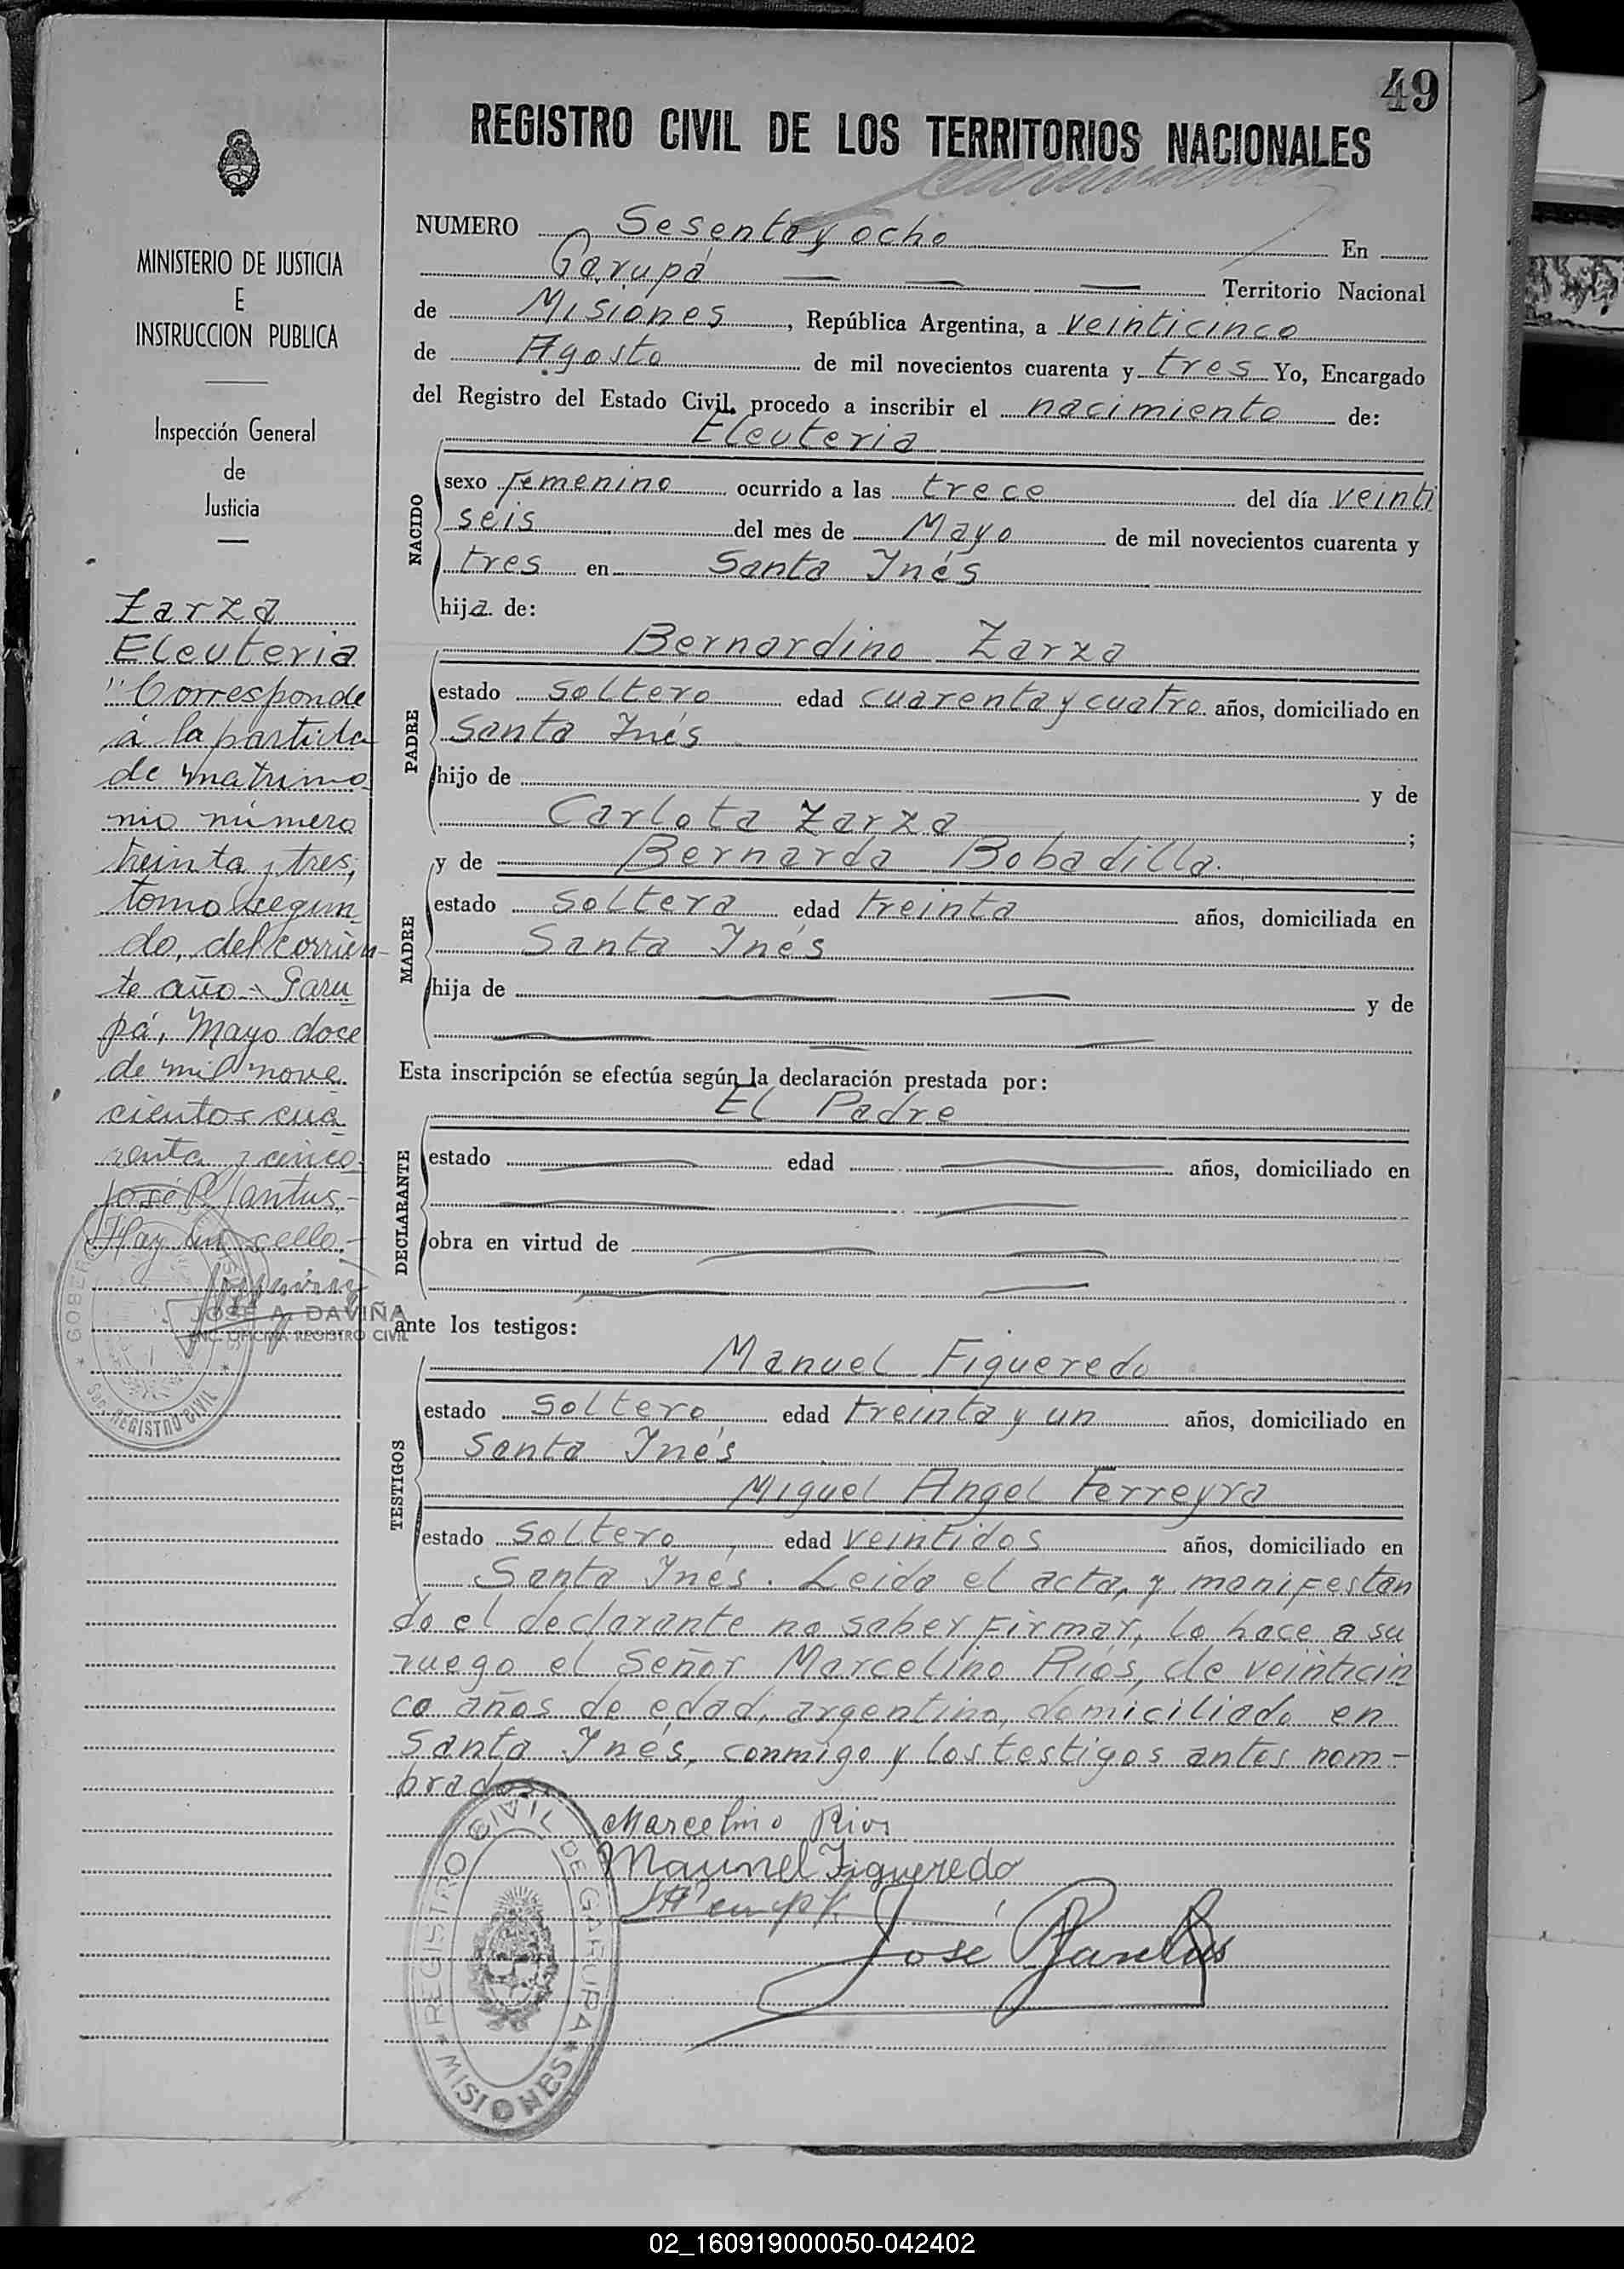 49
REGISTRO CIVIL DE LOS TERRITORIOS NACIONALES
MINISTERIO DE JUSTICIA
E
INSTRUCCION PUBLICA
Inspección General
de
Justicia
Zarza
Eleuteria
"Corresponde
á la partida
de matrimo
nio número
treinta y tres,
tomo segun
do, del corrien-
te año - Garu
pá, Mayo doce
de mil nove
cientos cua
renta y cinco
José R Jantus-
Hay un sello.-
JOSE A. DAVIÑA
ENC. OFICINA REGISTRO CIVIL
REGISTRO CIVIL
NUMERO Sesenta y ocho En
Garupá Territorio Nacional
de Misiones, República Argentina, a veinticinco
de Agosto de mil novecientos cuarenta y tres Yo, Encargado
del Registro del Estado Civil, procedo a inscribir el nacimiento de:
Eleuteria
NACIDO
sexo femenino ocurrido a las trece del día veinti
seis del mes de Mayo de mil novecientos cuarenta y
tres en Santa Inés
hija de:
Bernardino Zarza
PADRE
estado soltero edad cuarenta y cuatro años, domiciliado en
Santa Inés
hijo de y de
Carlota Zarza;
y de Bernarda Bobadilla.
MADRE
estado soltera edad treinta años, domiciliada en
Santa Inés
hija de y de
Esta inscripción se efectúa según la declaración prestada por:
El Padre
DECLARANTE
estado edad años, domiciliado en
obra en virtud de
ante los testigos:
Manuel Figueredo
TESTIGOS
estado soltero edad treinta y un años, domiciliado en
Santa Inés
Miguel Angel Ferreyra
estado soltero, edad veintidos años, domiciliado en
Santa Inés. Leida el acta, y manifestan
do el declarante no saber firmar, lo hace a su
ruego el Señor Marcelino Riós, de veinticin
co años de edad, argentino, domiciliado en
Santa Inés, conmigo y los testigos antes nom-
brados.
Marcelino Rios
Maunel Figueredo
José R Jantus
REGISTRO CIVIL DE GARUPA
* MISIONES *
02_160919000050-042402